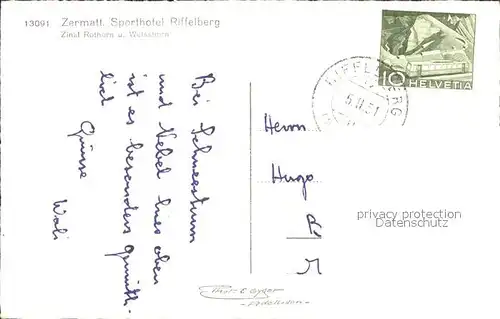 13091 Zermatt. Sporthotel Riffelberg
Zinal Rothorn u. Weisshorn
Bei Schneesturm
und Nebel hier oben
ist es besonders gemüt-
lich
Grüsse
Wali
HELVETIA
10
RIFFELBERG
5.II.51
Herrn
Hugo
privacy protection
Datenschutz